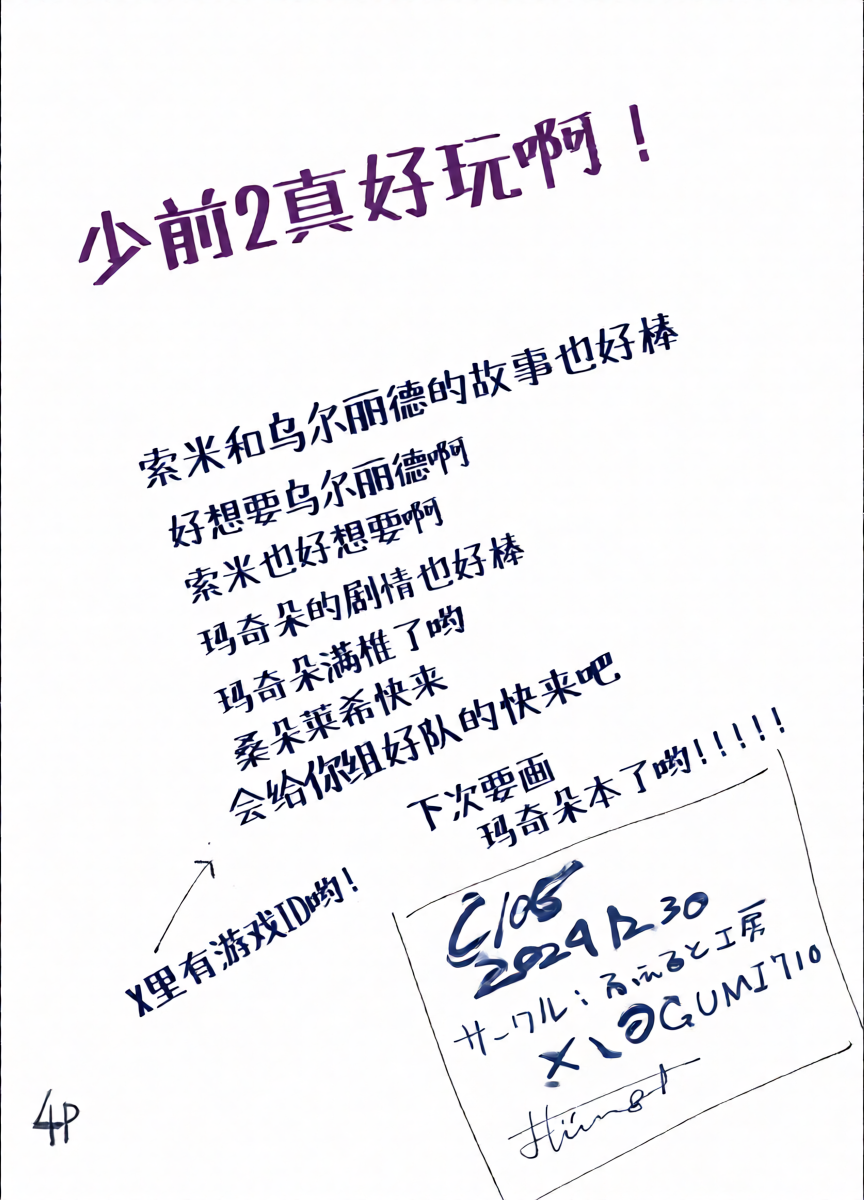 少前2真好玩啊！
索米和乌尔丽德的故事也好棒
好想要乌尔丽德啊
索米也好想要啊
玛奇朵的剧情也好棒
玛奇朵满椎了哟
桑朵莱希快来
会给你组好队的快来吧
下次要画
玛奇朵本了哟!!!!!
X里有游戏ID哟!
C105
2024 12 30
サークル：るふると工房
X、@GUMI710
4P